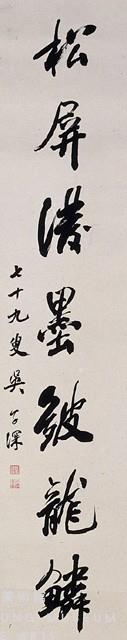 松屏潑墨皴龍鱗
七十九叟吳子深